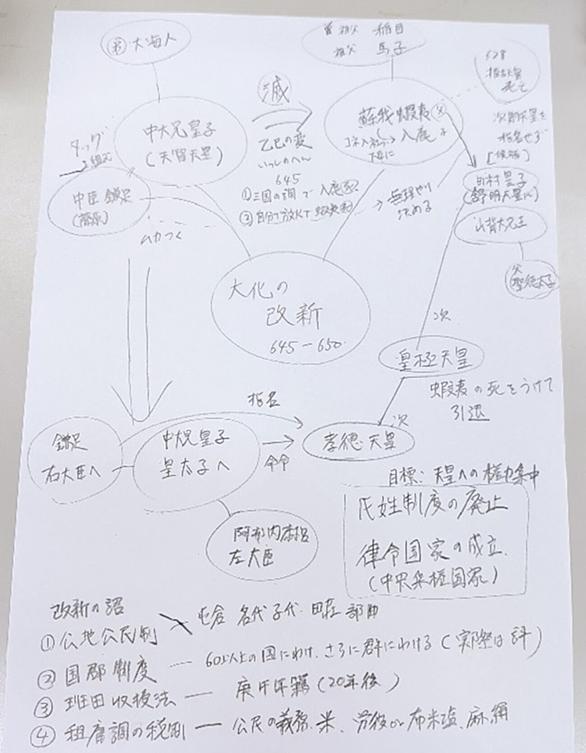 弟 大海人
曽祖父 稲目
祖父 馬子
中大兄皇子
(天智天皇)
タッグ
を組む
中臣鎌足
(藤原)
ムカつく
滅
乙巳の変
いっしのへん
645
①三国の調で入鹿
②自分で放火して蝦夷
蘇我蝦夷 父
入鹿 子
628
推古天皇
死亡
次期天皇を
指名せず
[候補]
田村皇子
(舒明天皇に)
山背大兄王
父
聖徳太子
→無理やり
決める
大化の
改新
645-650
次
皇極天皇
蝦夷の死をうけて
引退
次
孝徳天皇
指名
命令
鎌足
右大臣へ
中大兄皇子
皇太子へ
阿部内麻呂
左大臣
目標：天皇への権力集中
氏姓制度の廃止
律令国家の成立
(中央集権国家)
改新の詔
①公地公民制
屯倉 名代子代 田荘 部曲
②国郡制度 ― 60以上の国にわけ、さらに群にわける(実際は評)
③班田収授法 ― 庚午年籍(20年後)
④租庸調の税制 ― 公民の義務、米、労役or布米塩、麻絹